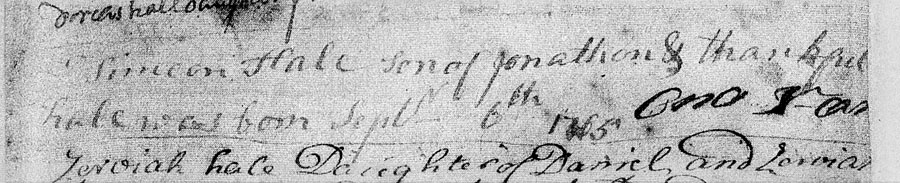 Dorcas hale Daughter
Simeon Hale Son of Jonathon & thankful
hale was born Sept 6th 1765
Zerviah hale Daughter of Daniel and Zerviah